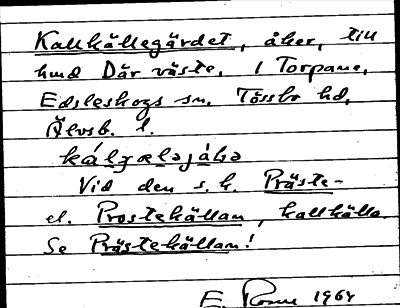 Kallkällegärdet, åker, till
hmd Där väste, 1 Torpane,
Edsleskogs sn. Tössbo hd,
Älvsb. l.
Vid den s.k. Präste-
el. Prostekällan, kallkälla.
Se Prästekällan!
E. 1964